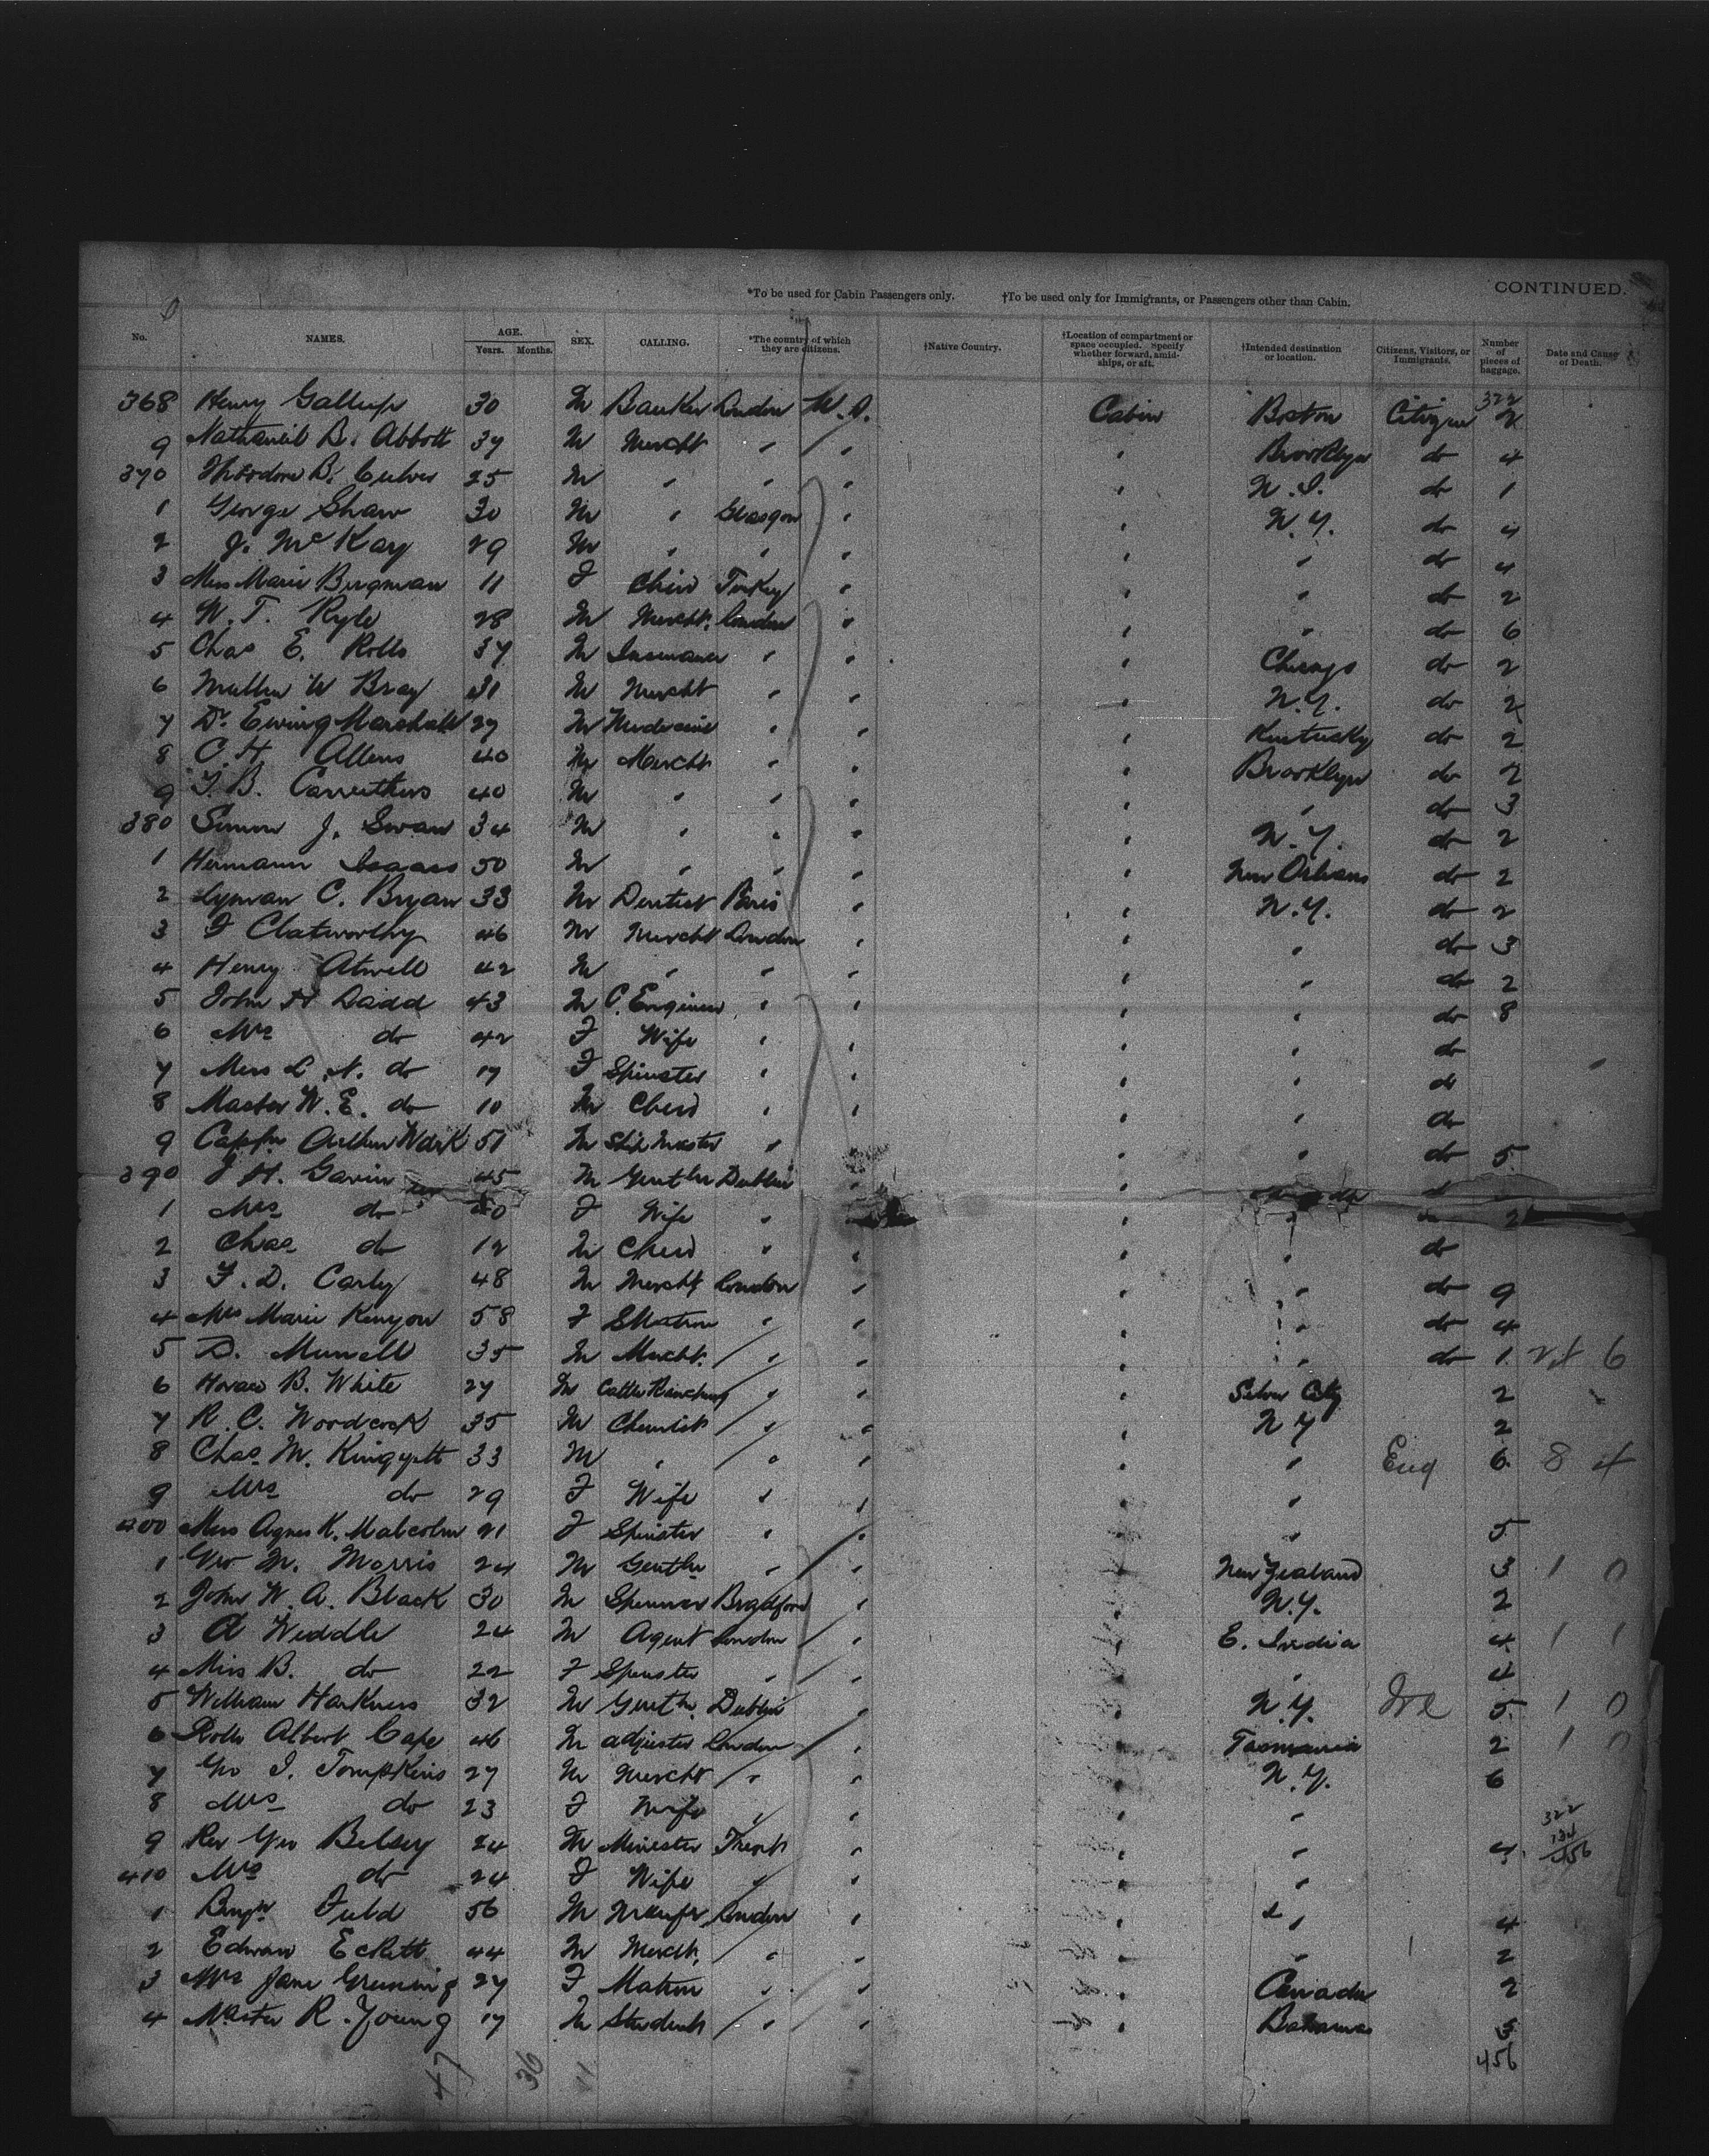 CONTINUED.
*To be used for Cabin Passengers only. †To be used only for Immigrants, or Passengers other than Cabin.
No. NAMES. AGE. Years. Months. SEX. CALLING. *The country of which they are citizens. †Native Country. †Location of compartment or space occupied. Specify whether forward, amid-ships, or aft. †Intended destination or location. Citizens, Visitors, or Immigrants. Number of pieces of baggage. Date and Cause of Death.
322
368 Henry Gallup 30 M Banker London Cabin Boston Citizen 2
9 Nathaniel B. Abbott 37 M Mercht " " " Brooklyn do 4
370 Theodore B. Culver 25 M " " " " do 1
1 George Shaw 30 M " Glasgow " " N.Y. do 4
2 J. McKay 29 M " " " " " do 4
3 Miss Marie Bergman 11 F Child " " " do 2
4 W. T. Ryle 28 M Mercht. London " " " do 6
5 Chas E. Rolls 37 M " " " Chicago do 2
6 W Bray 31 M Mercht " " " N.Y. do 2
7 Dr. Ewing Marshall 27 M Medicine " " " Kentucky do 2
8 C. H. Allens 40 M Mercht " " " Brooklyn do 2
9 T. B. Carruthers 40 M " " " " " do 3
380 Simon J. Swan 34 M " " " " N.Y. do 2
1 Hermann Isaacs 50 M " " " " New Orleans do 2
2 Lyman C. Bryan 33 M Dentist Paris " " N.Y. do 2
3 F Clatworthy 46 M Mercht London " " " do 3
4 Henry Atwell 42 M " " " " " do 2
5 John H Dadd 43 M C. Engineer " " " " do 8
6 Mrs do 42 F Wife " " " " do
7 Miss L. N. do 17 F Spinster " " " " do
8 Master W. E. do 10 M Child " " " " do
9 Captn Arthur Wark 51 M Ship Master " " " " do 5
390 J H. Gavin 45 M Gentln Dublin " "
1 Mrs do 40 F Wife " " " " 2
2 Chas do 12 M Child " " " " do
3 F. D. Carly 48 M Mercht London " " " do 9
4 Mrs Marie Kenyon 58 F Matron " " " " do 4
5 D. Munell 35 M Mercht. " " " " do 1
6 Horace B. White 27 M Cattle Ranching " " " Silver City 2
7 R. C. Woodcock 35 M Chemist " " " N Y 2
8 Chas. M. Kingzett 33 M " " " " " Eng 6 8 4
9 Mrs do 29 F Wife " " " "
400 Miss Agnes K. Malcolm 21 F Spinster " " " " 5
1 Geo M. Morris 24 M Gentln " " " New Zealand 3 1 0
2 John W. A. Black 30 M Spinner Bradford " " N.Y. 2
3 A Weddle 24 M Agent London " " E. India 4 1 1
4 Miss B. do 22 F Spinster " " " " 4
5 William Harkness 32 M Gentn. Dublin " " N.Y. Ire 5 1 0
6 Rollo Albert Cape 46 M adjuster London " " Tasmania 2 1 0
7 Geo I. Tompkins 27 M Mercht " " " N.Y. 6
8 Mrs do 23 F Wife " " " "
322
134
456
9 Rev Geo Belsey 24 M Minister " " " 4
410 Mrs do 24 F Wife " " " "
1 Benjn 56 M Manfr London " " " 4
2 Edward Eckett 44 M Mercht. " " " " 2
3 Mrs Jane 27 F Matron " " " Canada 2
4 Master R. Young 17 M Student " " " Bahamas 3
456
47 36 11